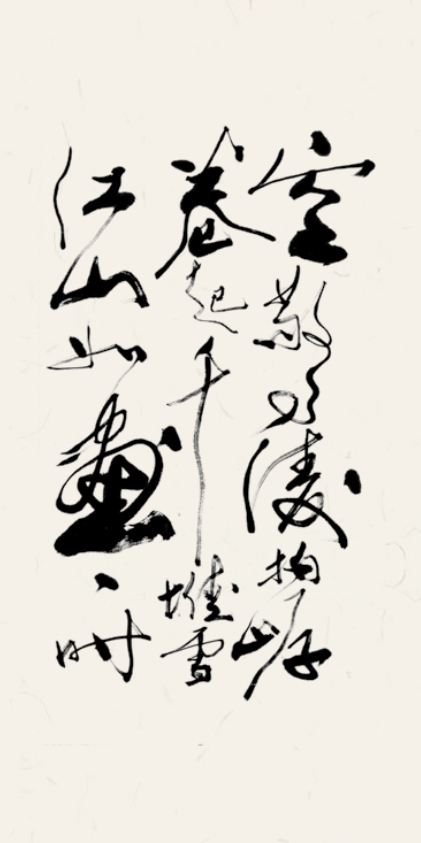 空驚濤拍岸
卷起千堆雪
江山如畫一时